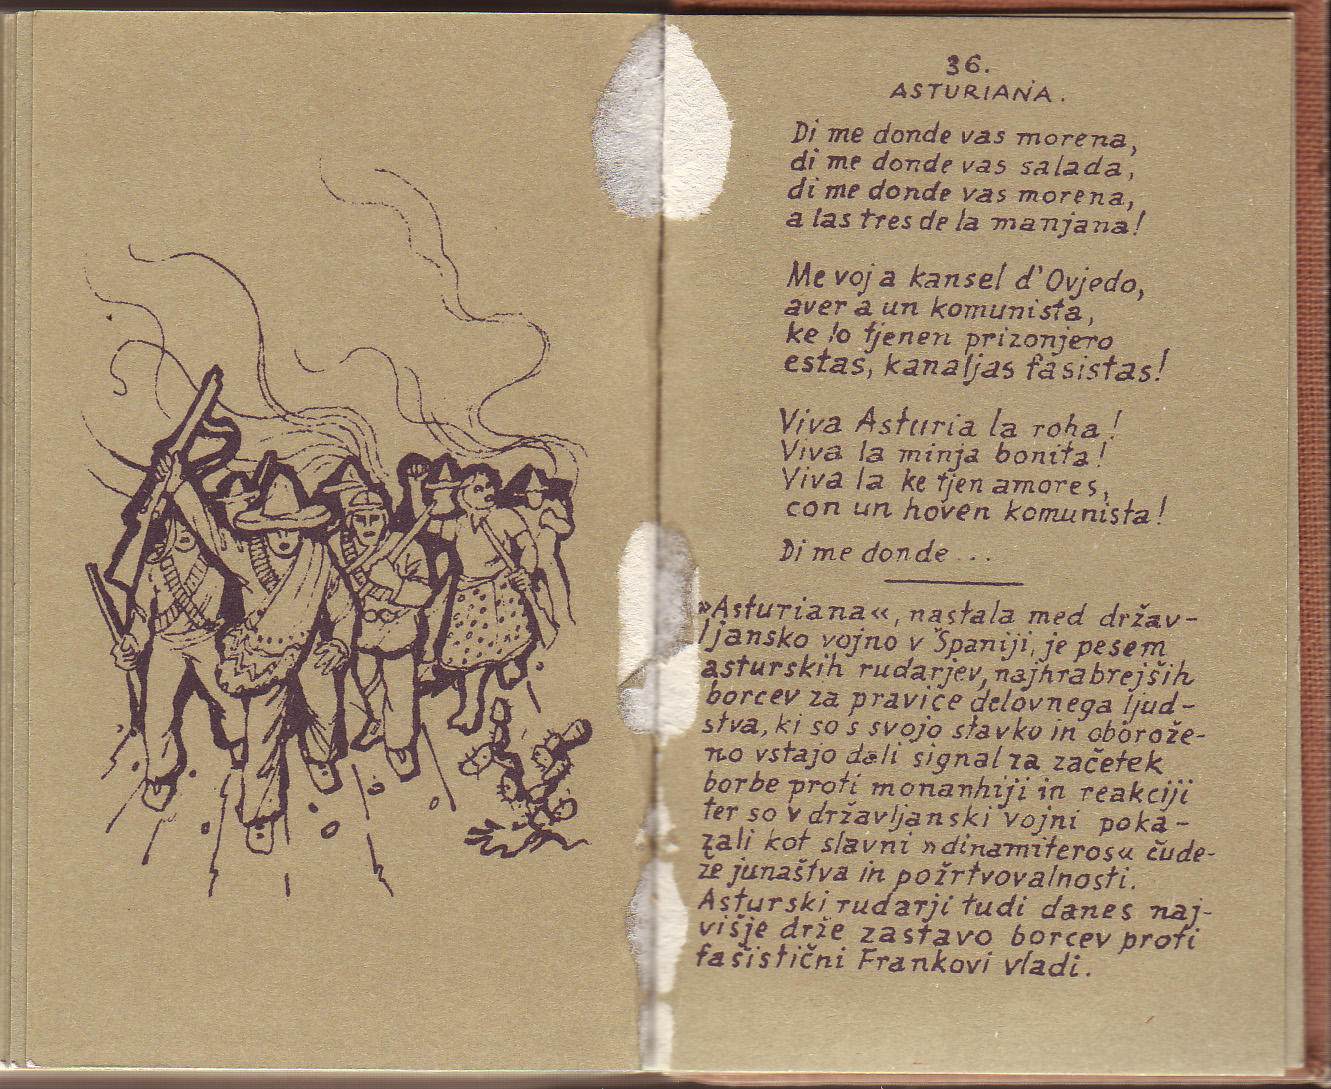 36.
ASTURIANA.
Di me donde vas morena,
di me donde vas salada,
di me donde vas morena,
a las tres de la manjana!
Me voj a kansel d'Ovjedo,
aver a un komunista,
ke lo tjenen prizonjero
estas, kanaljas fašistas!
Viva Asturia la roha!
Viva la minja bonita!
Viva la ke tjen amores,
con un hoven komunista!
Di me donde...
»Asturiana«, nastala med držav-
ljansko vojno v Španiji, je pesem
asturskih rudarjev, najhrabrejših
borcev za pravice delovnega ljud-
stva, ki so s svojo stavko in oborože-
no vstajo dali signal za začetek
borbe proti monanhiji in reakciji
ter so v državljanski vojni poka-
zali kot slavni »dinamiteros« čude-
že junaštva in požrtvovalnosti.
Asturski rudarji tudi danes naj-
višje drže zastavo borcev proti
fašistični Frankovi vladi.